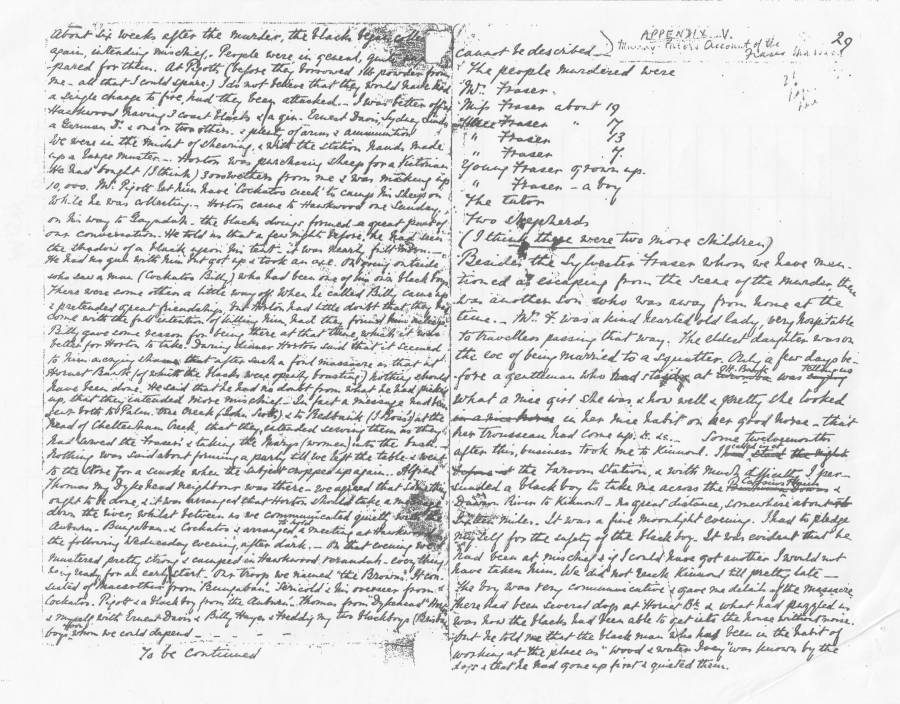 About six weeks after the murder, the blacks began
again, intending mischief. People were in general, quite
pared for them. At Pigott, (before they borrowed 1lb powder from
me - all that I could spare.) I do not believe that they would have had
a single charge to fire, had they been attacked. - I was better off at
Hawkwood having 1 coast blacks & a gin. Ernest Davis, Sydney
a German Dr. & one or two others. & plenty of arms & ammunition
We were in the midst of shearing, & with the station hands made
up a large muster. - Horton was purchasing sheep for a Victorian
He had bought (I think) 3000 wethers from me & was making up
10,000. Mr. Pigott let him have Cockatoo Creek to camp his sheep on
while he was collecting. - Horton came to Hawkwood one Sunday,
on his way to Gayndah. - the blacks doings formed a great part of
our conversation. He told us that a few nights before, he had seen
the shadow of a black upon his tent. I was nearly
He had no gun with him but got up & took an axe. On going outside
who saw a man (Cockatoo Billy) who had been one of my own black boys
There were some others a little way off. When he called Billy came up
& pretended great friendship, but Horton had little doubt that they had
come with the full intention of killing him, had they found him asleep
Billy gave some reason for being there at that time, which it was
better for Horton to take. During dinner Horton said that it seemed
to him a crying shame that after such a foul massacre as that at
Hornet Bank (of which the blacks were openly boasting) nothing should
have been done. He said that he had no doubt from what he had picked
up, that they intended more mischief - In fact a message had been
sent both to Palm Tree Creek (John Scott) & to Redbank (J Ross) at the
head of Cheltenham Creek, that they intended serving them as they
had served the Frasers & taking the Marys (women) into the bush. -
Nothing was said about forming a party till we left the table & went
to the store for a smoke when the subject cropped up again. Alfred
Thomas my Dykehead neighbour was there - we agreed that something
ought to be done, & it was arranged that Horton should take a message
down the river, whilst between us we communicated quietly with the
Auburn - Bungaban & Cockatoo & arranged a meeting at Hawkwood
the following Wednesday evening, after dark. - On that evening we
mustered pretty strong & camped in Hawkwood verandah. everything
being ready for an early start. Our troop we named "The Browns". It con-
sisted of Macarthur from Bungaban. Serocold & his overseer from
Cockatoo. Pigott & a blackboy from the Auburn. Thomas from Dykehead
& myself with Ernest Davis & Billy Hayes & Freddy my two blackboys
boys whom we could depend - - - -
To be Continued
APPENDIX. V.
Murray-Prior's Account of the
Fraser
29
cannot be described
"The people murdered were
"Mr. Fraser.
Miss Fraser about 19
Fraser " 17
" Fraser 13
" Fraser 7.
Young Fraser grown up.
" Fraser - a boy
The tutor
Two shepherds
(I think there were two more children)
Besides the Sylvester Fraser whom we have men-
tioned as escaping from the scene of the murder, there
was another son who was away from home at the
time. - Mrs. F. was a kind hearted old lady, very hospitable
to travellers passing that way. The eldest daughter was on
the eve of being married to a squatter. Only a few days be-
fore a gentleman who had stayed at Ht. Bank was telling us
what a nice girl she was, & how well & pretty she looked
in her nice habit on her good horse - that
her trousseau had come up, &c. &c. - Some twelvemonths
after this, business took me to Kinnoul. I
the Taroom Station, & with much difficulty I per-
suaded a black boy to take me across the
Dawson River to Kinnoul - no great distance, somewhere about
sixteen miles. It was a fine moonlight evening. I had to pledge
myself for the safety of the black boy. It was evident that he
had been at mischief & if I could have got another I would not
have taken him. We did not reach Kinnoul till pretty late -
The boy was very communicative & gave me details of the massacre
There had been several dogs at Hornet Bk. & what had puzzled us
was how the blacks had been able to get into the house without noise.
but he told me that the black man who had been in the habit of
working at the place as "wood & water Joey" was known by the
dogs & that he had gone up first & quieted them.